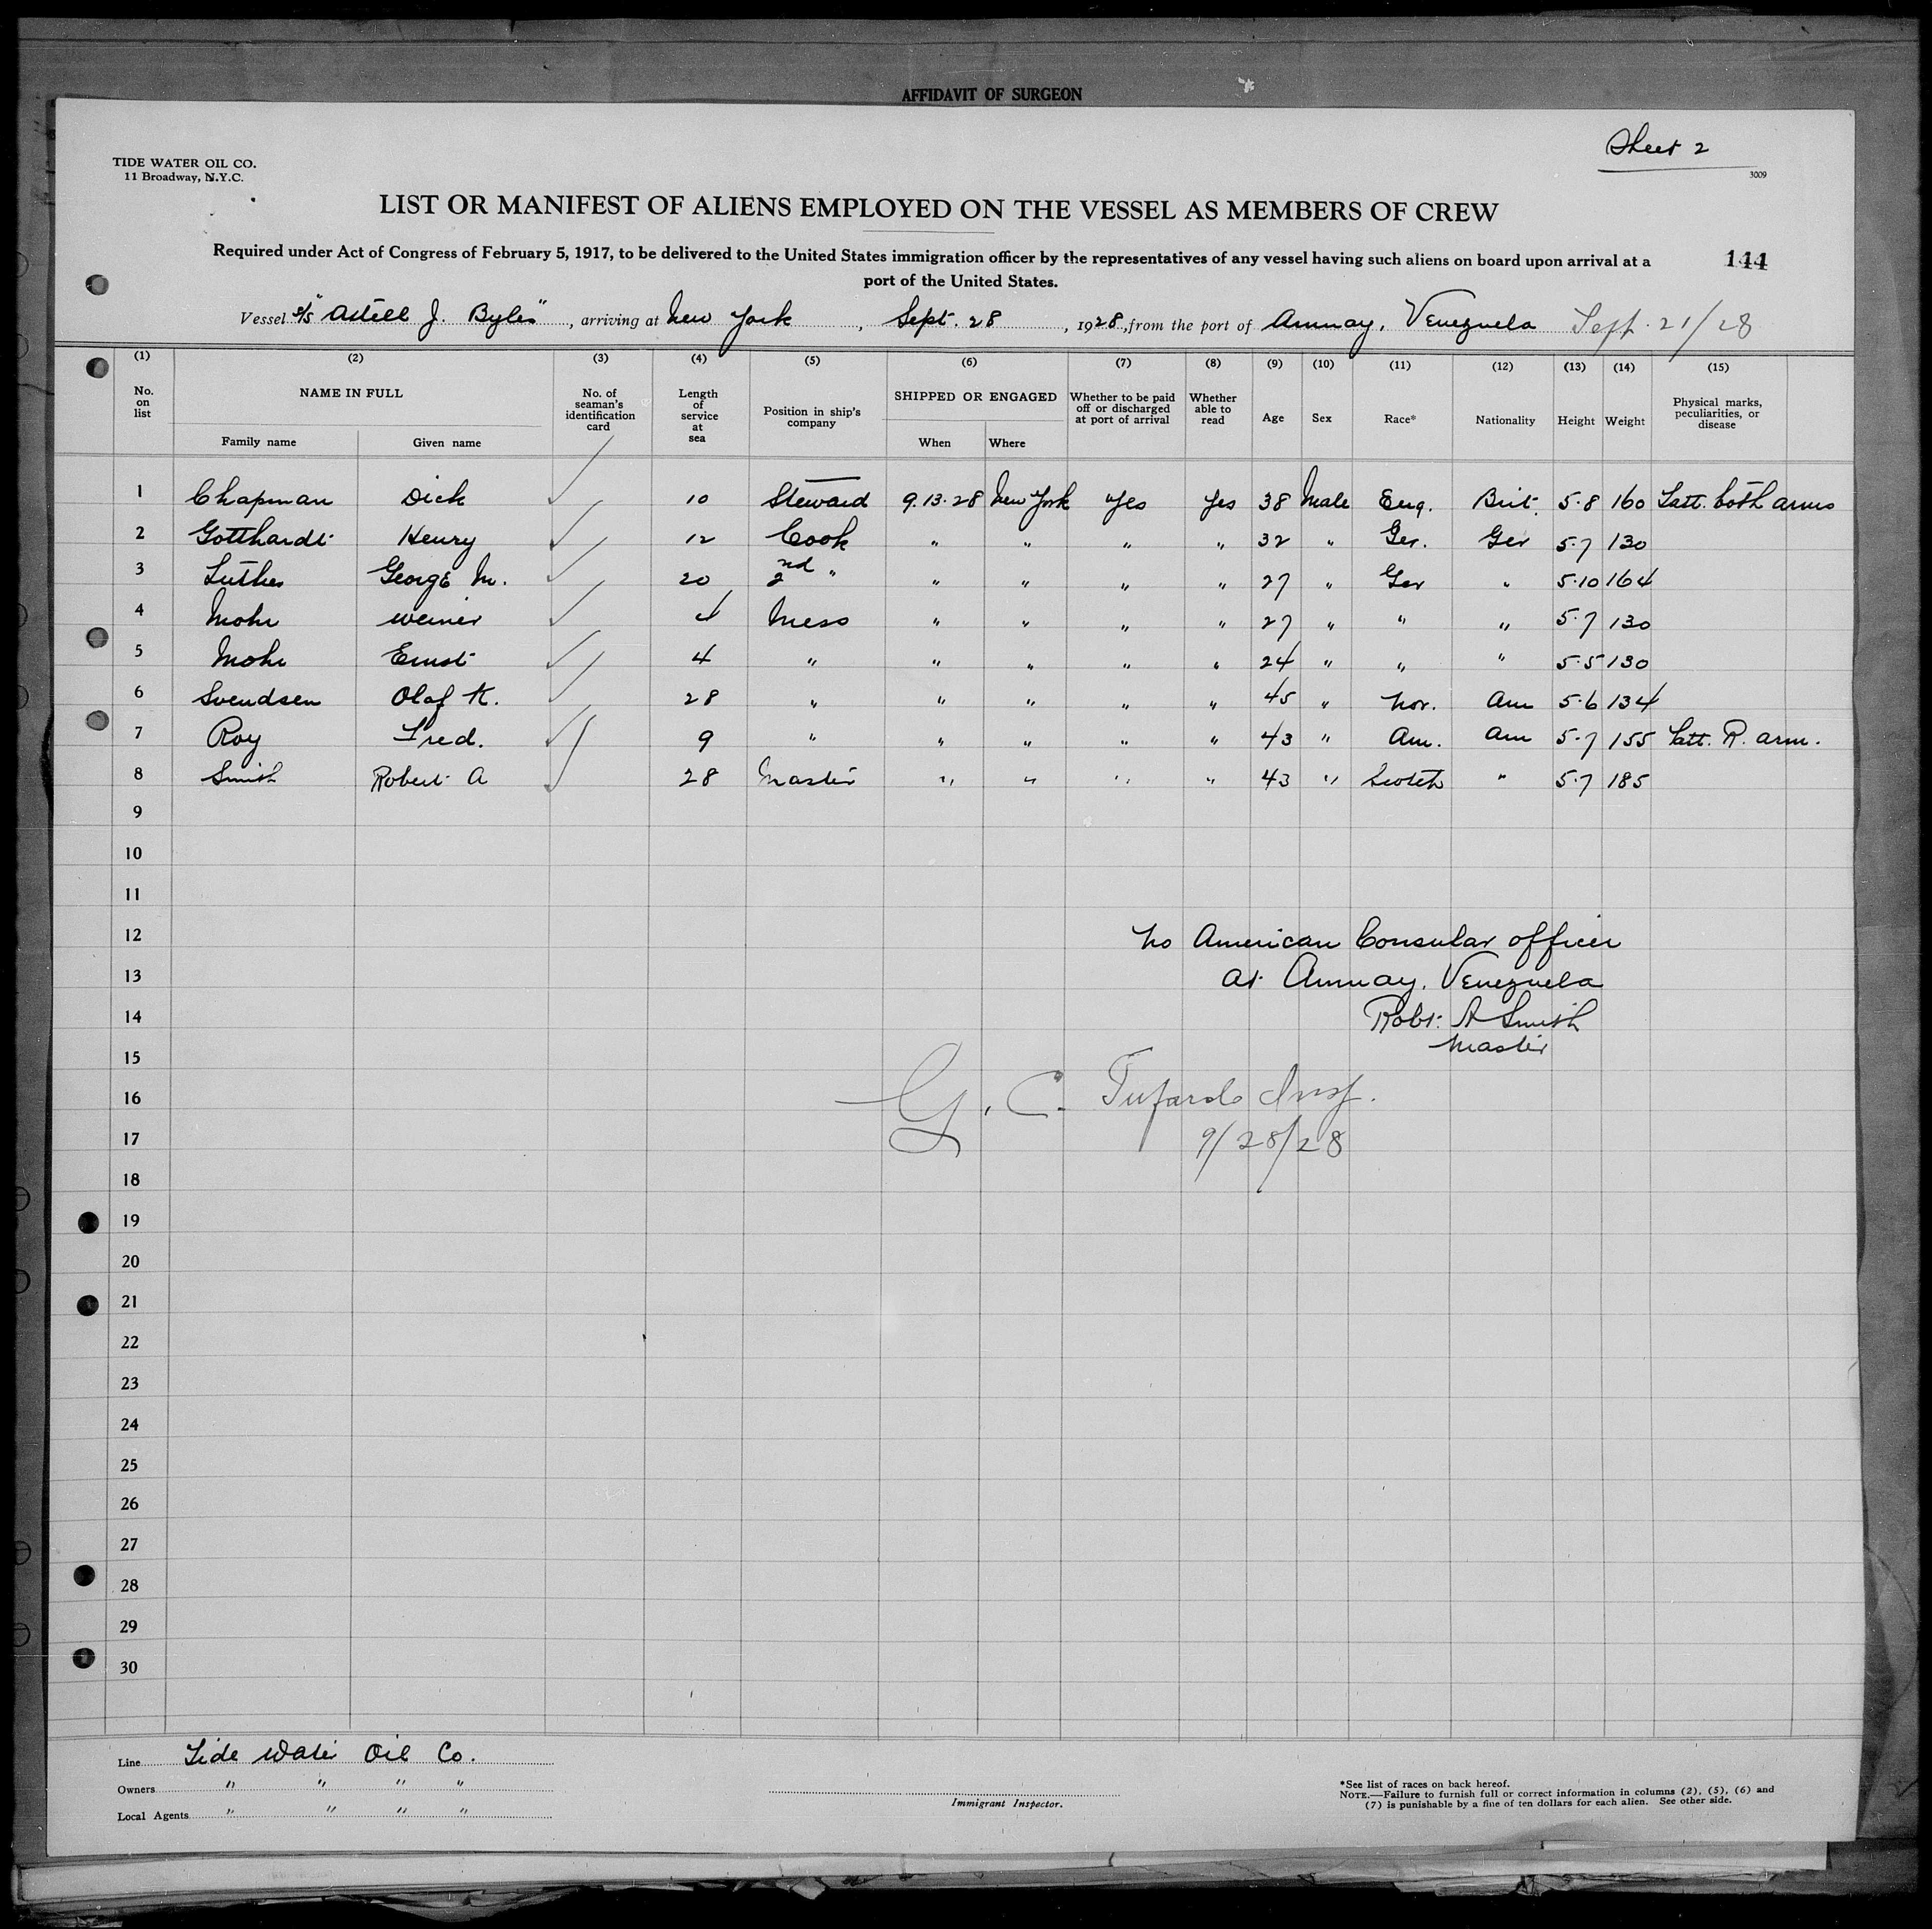 AFFIDAVIT OF SURGEON
Sheet 2
TIDE WATER OIL CO.
11 Broadway, N.Y.C.
3009
LIST OR MANIFEST OF ALIENS EMPLOYED ON THE VESSEL AS MEMBERS OF CREW
Required under Act of Congress of February 5, 1917, to be delivered to the United States immigration officer by the representatives of any vessel having such aliens on board upon arrival at a
port of the United States.
144
Vessel S/S "Axtell J. Byles", arriving at New York, Sept. 28, 1928, from the port of Amuay, Venezuela Sept. 21/28
(1) (2) (3) (4) (5) (6) (7) (8) (9) (10) (11) (12) (13) (14) (15)
No. on list
NAME IN FULL
Family name Given name
No. of seaman's identification card
Length of service at sea
Position in ship's company
SHIPPED OR ENGAGED
When Where
Whether to be paid off or discharged at port of arrival
Whether able to read
Age Sex Race* Nationality Height Weight
Physical marks, peculiarities, or disease
1 Chapman Dick 10 Steward 9.13.28 New York Yes Yes 38 Male Eng. Brit. 5.8 160 Tatt. both arms
2 Gotthardt Henry 12 Cook " " " " 32 " Ger. Ger 5.7 130
3 Luther George M. 20 2nd " " " " " 27 " Ger " 5.10 164
4 Mohr Weiner 4 Mess " " " " 27 " " " 5.7 130
5 Mohr Ernst 4 " " " " " 24 " " " 5.5 130
6 Svendsen Olaf K. 28 " " " " " 45 " Nor. Am 5.6 134
7 Roy Fred. 9 " " " " " 43 " Am. Am 5.7 155 Tatt. R. arm.
8 Smith Robert A 28 Master " " " " 43 " Scotch " 5.7 185
9
10
11
12 No American Consular officer
13 at Amuay, Venezuela
14 Robt. A Smith
15 Master
16 G. C. Insp.
17 9/28/28
18
19
20
21
22
23
24
25
26
27
28
29
30
Line Tide Water Oil Co.
Owners " " " "
Local Agents " " " "
Immigrant Inspector.
*See list of races on back hereof.
NOTE.—Failure to furnish full or correct information in columns (2), (5), (6) and
(7) is punishable by a fine of ten dollars for each alien. See other side.